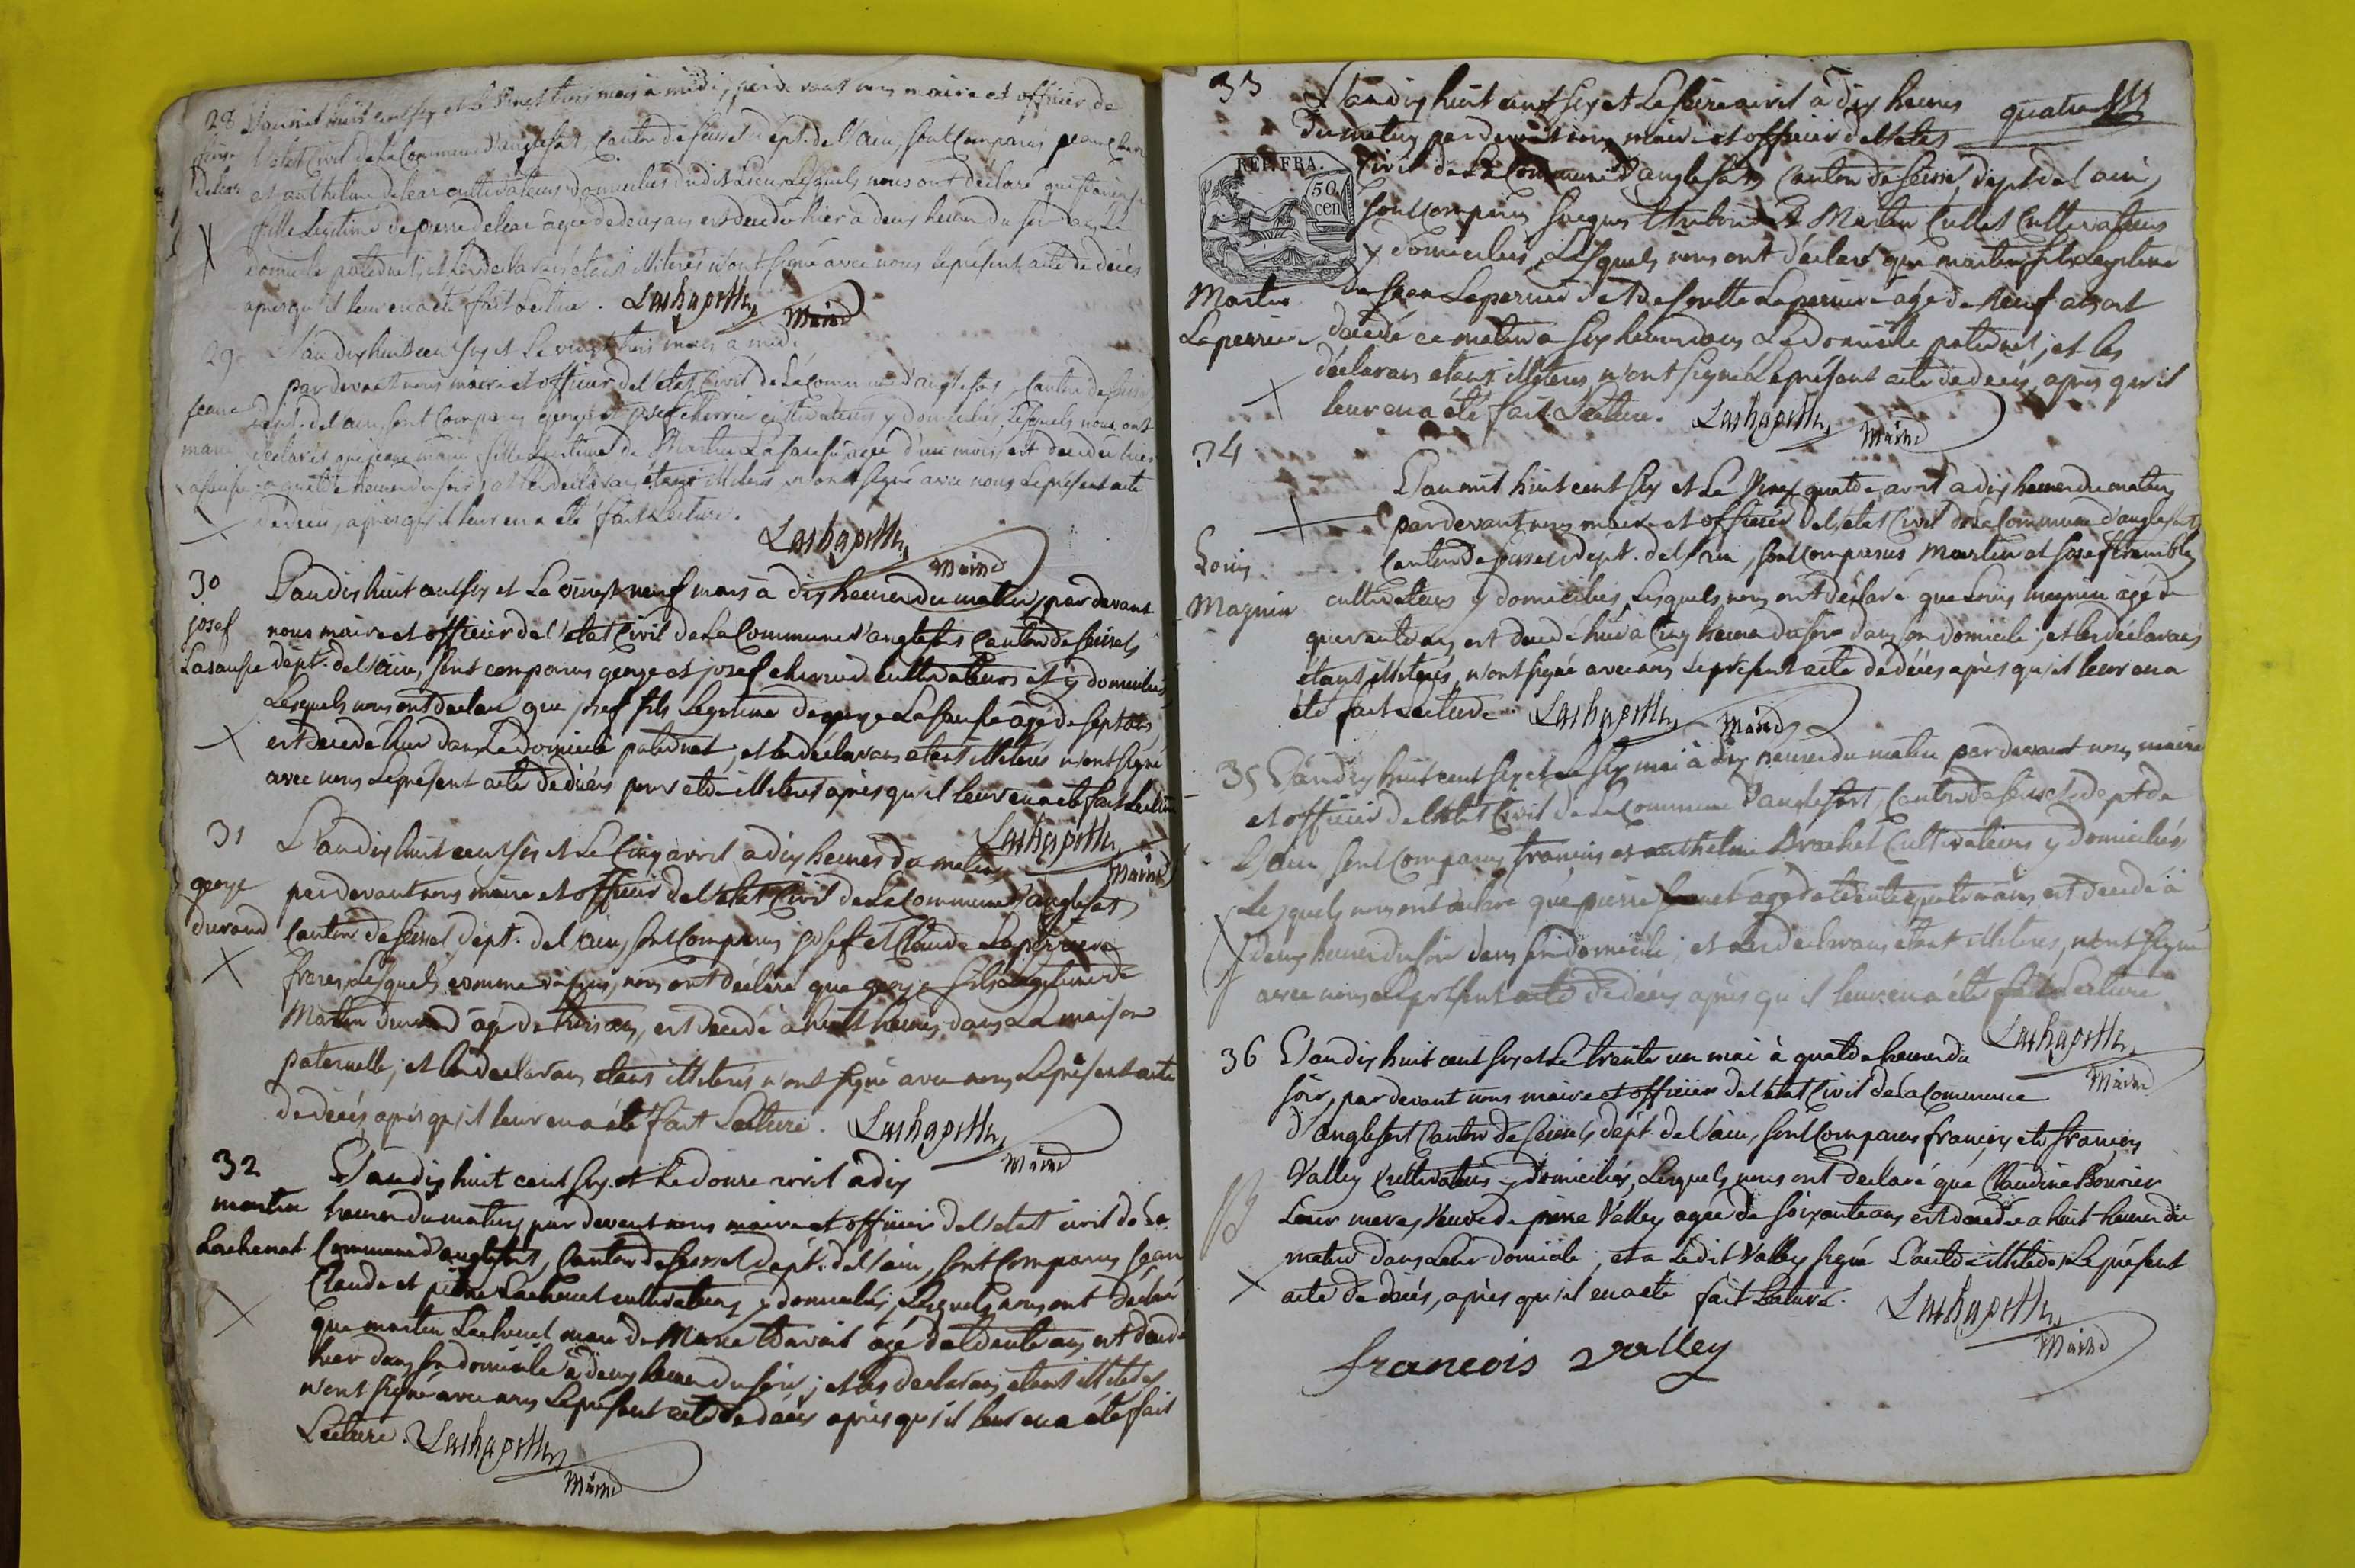 28 L'an mil huit cent six et le vingt trois mars à midi, par devant nous maire et officier de
l'état civil de la commune d'anglefort, canton de seissel dépt. de l'ain, sont comparus
delear et anthelme delear cultivateurs domiciliés dudit lieu, lesquels nous ont déclaré que
fille legitime de pierre delear agée de deux ans est decedée hier à deux heures du soir dans le
domicile paternel; et les declarans étant illiterés n'ont signé avec nous le présent acte de décès
après qu'il leur en a été fait lecture. Lachapelle
Maire
29 L'an dix huit cent six et le vingt trois mars à midi
par devant nous maire et officier de l'état civil de la commune d'anglefort, canton de seissel
jeane dépt. de l'ain, sont comparus george et josef cherrier cultivateurs y domiciliés, lesquels nous ont
marie déclaré que jeane marie fille legitime de Martin Lasausse agée d'un mois est decedée hier
Lasausse à quatre heures du soir; et les déclarans étant illiterés n'ont signé avec nous le présent acte
de décès, après qu'il leur en a été fait lecture.
Lachapelle
Maire
30 L'an dix huit cent six et le vingt neuf mars à dix heures du matin, par devant
josef nous maire et officier de l'état civil de la commune d'anglefort canton de seissel
Lasausse dépt. de l'ain, sont comparus george et josef cherrier cultivateurs et y domiciliés,
lesquels nous ont declaré que josef fils legitime de george Lasausse agé de sept ans
est decedé hier dans le domicile paternel; et les déclarans étant illiterés n'ont signé
avec nous le présent acte de décès pour etre illiterés après qu'il leur en a été fait lecture
Lachapelle
Maire
31 L'an dix huit cent six et le cinq avril à dix heures du matin
george par devant nous maire et officier de l'état civil de la commune d'anglefort
durand canton de seissel dépt. de l'ain, sont comparus josef et Claude Laperriere
freres, lesquels comme voisins, nous ont déclaré que george fils legitime de
Martin durand agé de trois ans, est decedé à huit heures dans la maison
paternelle; et les declarans étant illiterés n'ont signé avec nous le présent acte
de décès après qu'il leur en a été fait lecture. Lachapelle
Maire
32 L'an dix huit cent six et le douze avril à dix
martin heures du matin, par devant nous maire et officier de l'état civil de la
Lachenal commune d'anglefort, canton de seissel dépt. de l'ain, sont comparus jean
Claude et pierre Lachenal cultivateurs y domiciliés, lesquels nous ont déclaré
que martin Lachenal mari de Marie agé de trente ans est decedé
hier dans son domicile à deux heures du soir; et les declarans étant illiterés
n'ont signé avec nous le présent acte de décès après qu'il leur en a été fait
Lecture. Lachapelle
Maire
33 L'an dix huit cent six et le seize avril à dix heures
quatre
du matin par devant nous maire et officier de l'état
REP. FRA.
50
cen
civil de la commune d'anglefort canton de seissel, dépt. de l'ain,
sont comparus jacques et Martin Cullet cultivateurs
y domiciliés, lesquels nous ont déclaré que martin, fils legitime
Martin de jean Laperriere et de Laperriere agé de neuf ans est
Laperriere decedé ce matin à six heures dans le domicile paternel; et les
déclarans étant illiterés, n'ont signé le présent acte de décès, après qu'il
leur en a été fait lecture. Lachapelle
Maire
34
L'an mil huit cent six et le vingt quatre avril à dix heures du matin
par devant nous maire et officier de l'état civil de la commune d'anglefort
Louis canton de seissel dépt. de l'ain, sont comparus Martin et josef
Magnin cultivateurs y domiciliés, lesquels nous ont déclaré que Louis magnin agé de
quarante ans, est decedé hier à cinq heures du soir dans son domicile; et les déclarans
étant illiterés, n'ont signé avec nous le présent acte de décès après qu'il leur en a
été fait lecture. Lachapelle
Maire
35 L'an dix huit cent six et le six mai à dix heures du matin par devant nous maire
et officier de l'état civil de la commune d'anglefort, canton de seissel dépt de
l'ain, sont comparus francois et anthelme Brachet cultivateurs y domiciliés,
lesquels nous ont déclaré que pierre agé de trente quatre ans est decedé à
deux heures du soir dans son domicile; et les declarans étant illiterés, n'ont signé
avec nous le présent acte de décès après qu'il leur en a été fait Lecture.
Lachapelle
Maire
36 L'an dix huit cent six et le trente un mai à quatre heures du
soir, par devant nous maire et officier de l'état civil de la commune
d'anglefort canton de seissel dépt. de l'ain, sont comparus francois et francois
Valley cultivateurs y domiciliés, lesquels nous ont declaré que Claudine
leur mere, veuve de pierre Valley agée de soixante ans est decedée à huit heures du
matin dans leur domicile, et a ledit Valley signé l'autre illiteré, le présent
acte de décès, après qu'il en a été fait lecture. Lachapelle
Maire
francois valley